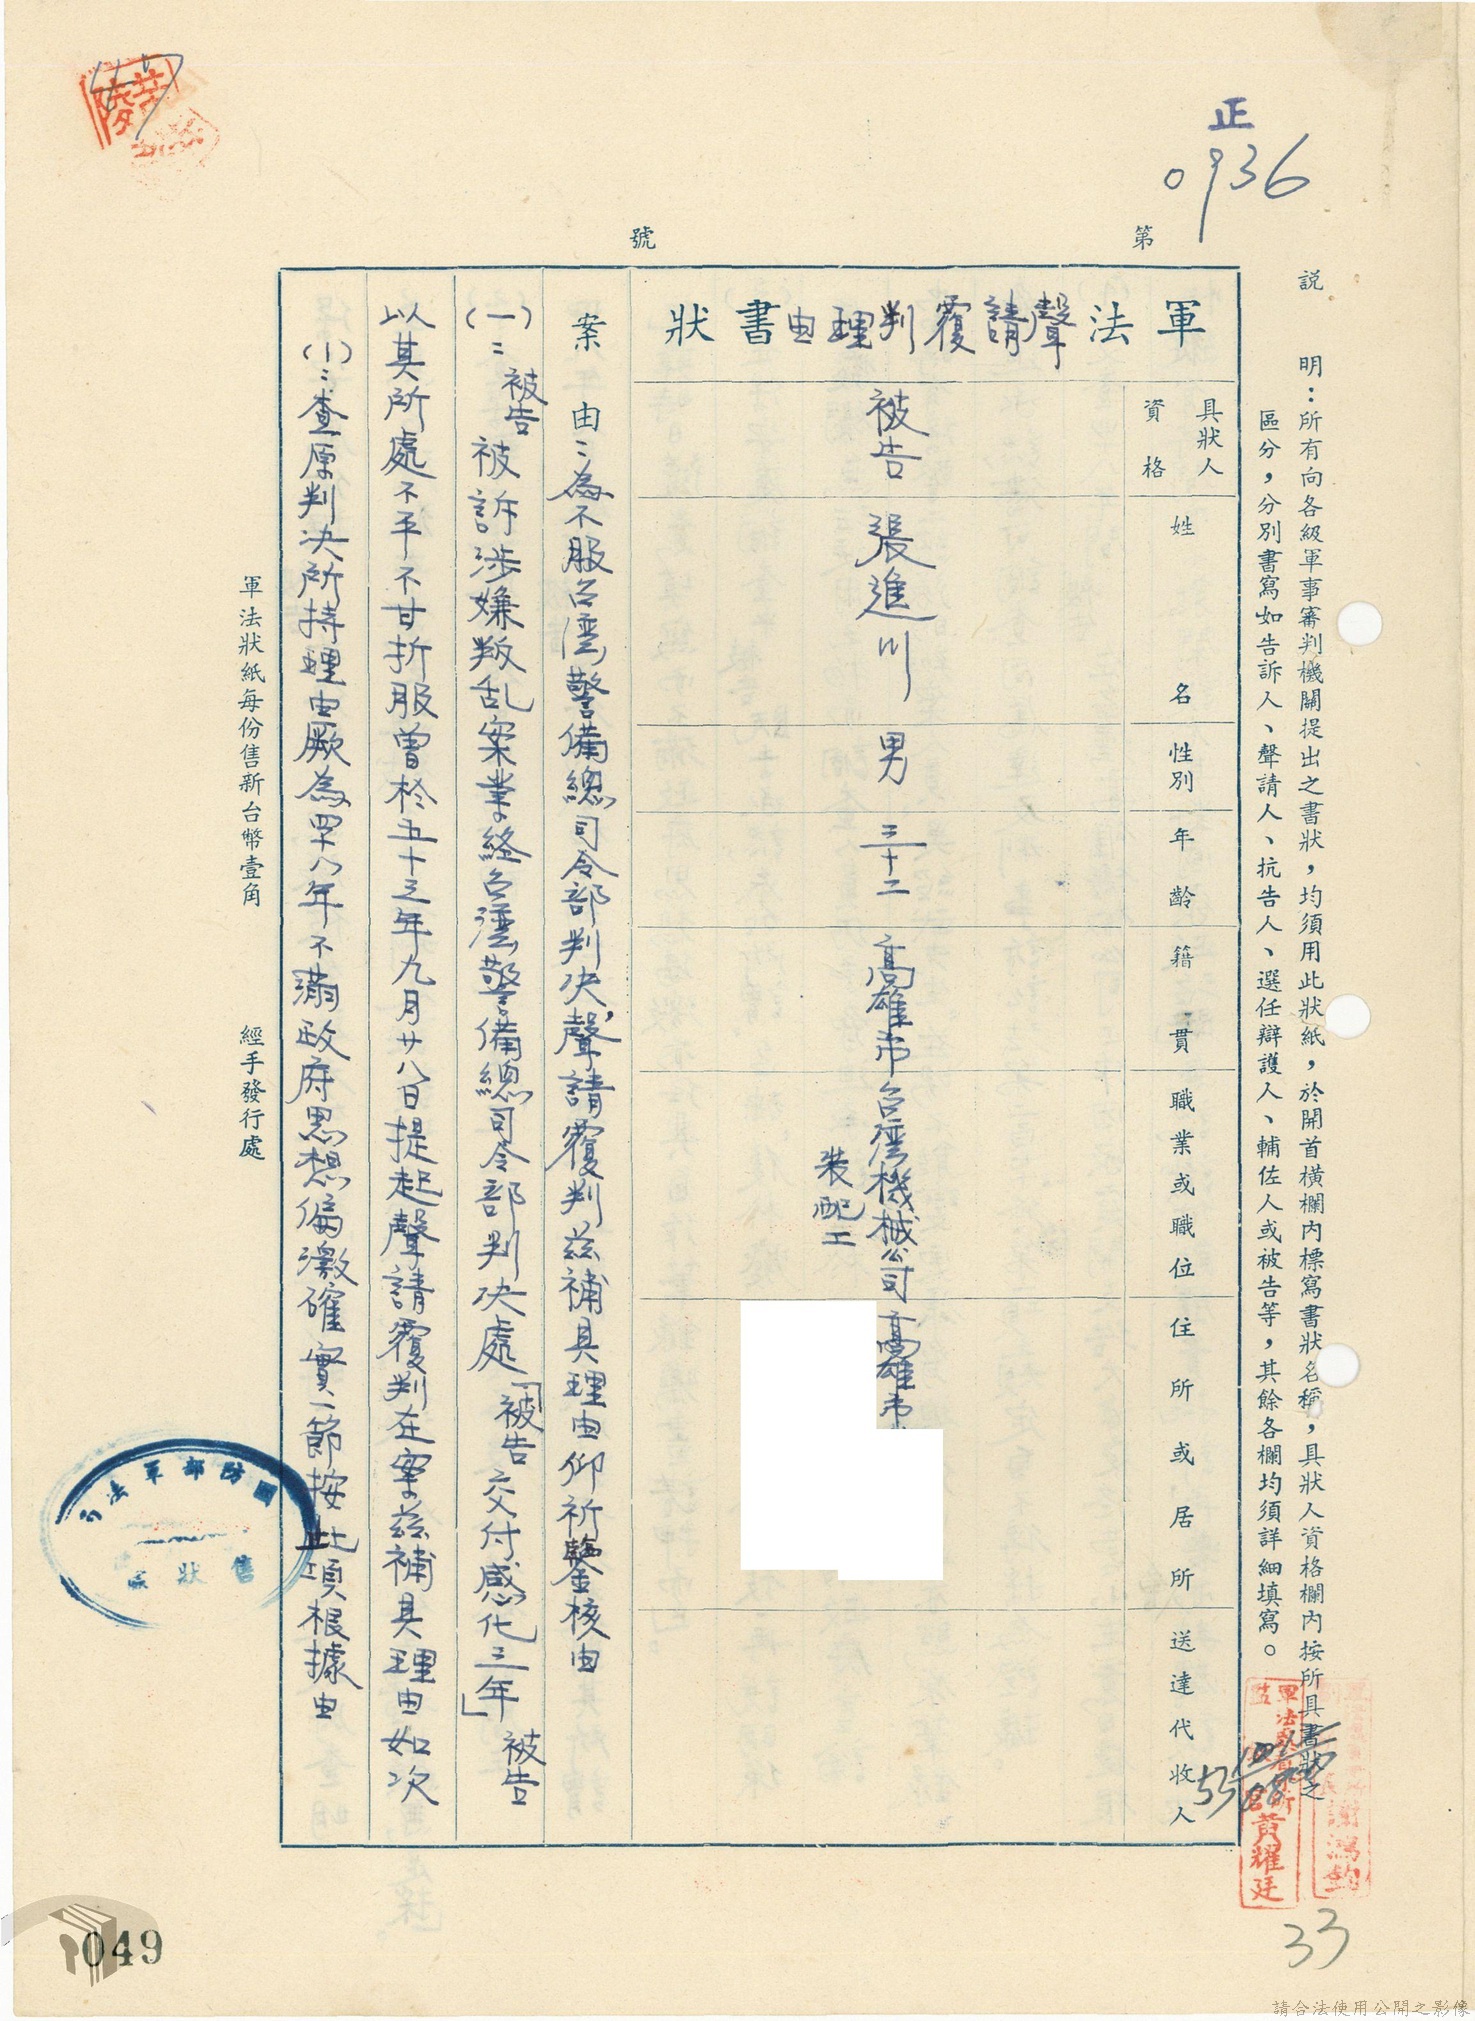 正
0936
第
號
說明：所有向各級軍事審判機關提出之書狀，均須用此狀紙，於開首橫欄內標寫書狀名稱，具狀人資格欄內按所具書狀之
區分，分別書寫如告訴人、聲請人、抗告人、選任辯護人、輔佐人或被告等，其餘各欄均須詳細填寫。
軍法聲請覆判理由書狀
具狀人資格
姓名
性別
年齡
籍貫
職業或職位
住所或居所
送達代收人
被告
張進川
男
三十二
高雄市
台灣機械公司
裝配工
高雄市
案由：為不服台灣警備總司令部判決，聲請覆判茲補具理由仰祈鑒核由
(一)：被告被訴涉嫌叛乱案業經台灣警備總司令部判決處「被告交付感化三年」被告
以其所處不平不甘折服曾於五十三年九月廿八日提起聲請覆判在案茲補具理由如次
(1)：查原判決所持理由厥為四十八年不滿政府思想偏激確實一節按此項根據由
軍法狀紙每份售新台幣壹角
經手發行處
國防部軍法局
售狀
黃耀廷
謝鴻鈞
33
049
請合法使用公開之影像